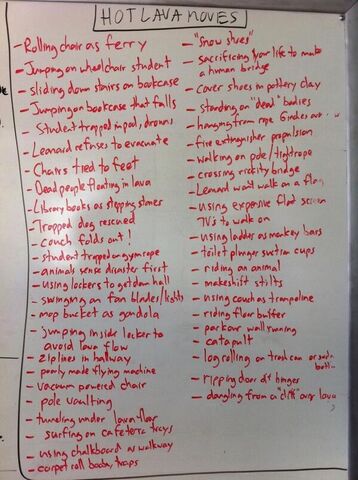 HOT LAVA MOVES
- Rolling chair as ferry
- Jumping on wheelchair student
- sliding down stairs on bookcase
- Jumping on bookcase that falls
- Student trapped in pod, drowns
- Leonard refuses to evacuate
- Chairs tied to feet
- Dead people floating in lava
- Library books as stepping stones
- Trapped dog rescued
- couch folds out!
- student trapped on gym rope
- animals sense disaster first
- using lockers to get down hall
- swinging on fan blades/lights
- mop bucket as gondola
- jumping inside locker to
avoid lava flow
- ziplines in hallway
- poorly made flying machine
- vacuum powered chair
- pole vaulting
- tunneling under lava floor
- surfing on cafeteria trays
- using chalkboard as walkway
- carpet roll booby traps
- "snow shoes"
- sacrificing your life to make
a human bridge
- cover shoes in pottery clay
- standing on "dead" bodies
- hanging from rope
- fire extinguisher propulsion
- walking on pole/tightrope
- crossing rickity bridge
- Lennard wont walk on a flag
- using expensive flat screen
TVs to walk on
- using ladder as monkey bars
- toilet plunger suction cups
- riding an animal
- makeshift stilts
- using couch as trampoline
- riding floor buffer
- parkour wall running
- catapult
- log rolling on trash can or
- ripping door off hinges
- dangling from a "cliff" over lava